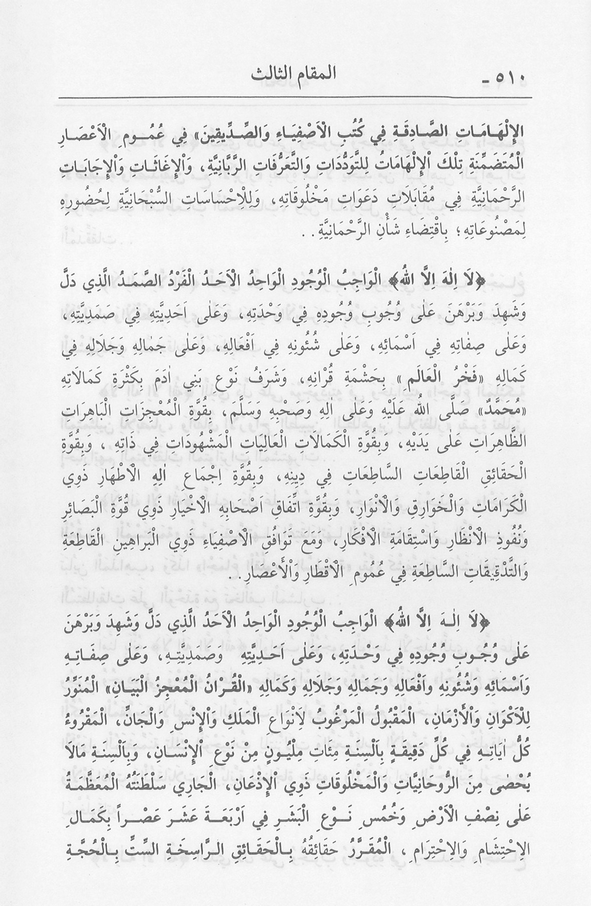 ٥١٠ ـ المقام الثالث
الْاِلْهَامَاتِ الصَّادِقَةِ فِي كُتُبِ الْاَصْفِيَاءِ وَالصِّدِّيقِينَ» فِي عُمُومِ الْاَعْصَارِ
الْمُتَضَمِّنَةِ تِلْكَ الْاِلْهَامَاتُ لِلتَّوَدُّدَاتِ وَالتَّعَرُّفَاتِ الرَّبَّانِيَّةِ، وَالْاِغَاثَاتِ وَالْاِجَابَاتِ
الرَّحْمَانِيَّةِ فِي مُقَابَلَاتِ دَعَوَاتِ مَخْلُوقَاتِهِ، وَلِلْاِحْسَاسَاتِ السُّبْحَانِيَّةِ لِحُضُورِهِ
لِمَصْنُوعَاتِهِ؛ بِاقْتِضَاءِ شَأْنِ الرَّحْمَانِيَّةِ..
﴿لَا اِلٰهَ اِلَّا اللهُ﴾ الْوَاجِبُ الْوُجُودِ الْوَاحِدُ الْاَحَدُ الْفَرْدُ الصَّمَدُ الَّذِي دَلَّ
وَشَهِدَ وَبَرْهَنَ عَلٰى وُجُوبِ وُجُودِهِ فِي وَحْدَتِهِ، وَعَلٰى اَحَدِيَّتِهِ فِي صَمَدِيَّتِهِ،
وَعَلٰى صِفَاتِهِ فِي اَسْمَائِهِ، وَعَلٰى شُئُونِهِ فِي اَفْعَالِهِ، وَعَلٰى جَمَالِهِ وَجَلَالِهِ فِي
كَمَالِهِ «فَخْرُ الْعَالَمِ» بِحَشْمَةِ قُرْاٰنِهِ، وَشَرَفُ نَوْعِ بَنِي اٰدَمَ بِكَثْرَةِ كَمَالَاتِهِ
«مُحَمَّدٌ» صَلَّى اللهُ عَلَيْهِ وَعَلٰى اٰلِهِ وَصَحْبِهِ وَسَلَّمَ، بِقُوَّةِ الْمُعْجِزَاتِ الْبَاهِرَاتِ
الظَّاهِرَاتِ عَلٰى يَدَيْهِ، وَبِقُوَّةِ الْكَمَالَاتِ الْعَالِيَاتِ الْمَشْهُودَاتِ فِي ذَاتِهِ، وَبِقُوَّةِ
الْحَقَائِقِ الْقَاطِعَاتِ السَّاطِعَاتِ فِي دِينِهِ، وَبِقُوَّةِ اِجْمَاعِ اٰلِهِ الْاَطْهَارِ ذَوِي
الْكَرَامَاتِ وَالْخَوَارِقِ وَالْاَنْوَارِ، وَبِقُوَّةِ اتِّفَاقِ اَصْحَابِهِ الْاَخْيَارِ ذَوِي قُوَّةِ الْبَصَائِرِ
وَنُفُوذِ الْاَنْظَارِ وَاسْتِقَامَةِ الْاَفْكَارِ، وَمَعَ تَوَافُقِ الْاَصْفِيَاءِ ذَوِي الْبَرَاهِينِ الْقَاطِعَةِ
وَالتَّدْقِيقَاتِ السَّاطِعَةِ فِي عُمُومِ الْاَقْطَارِ وَالْاَعْصَارِ..
﴿لَا اِلٰهَ اِلَّا اللهُ﴾ الْوَاجِبُ الْوُجُودِ الْوَاحِدُ الْاَحَدُ الَّذِي دَلَّ وَشَهِدَ وَبَرْهَنَ
عَلٰى وُجُوبِ وُجُودِهِ فِي وَحْدَتِهِ، وَعَلٰى اَحَدِيَّتِهِ وَصَمَدِيَّتِهِ، وَعَلٰى صِفَاتِهِ
وَاَسْمَائِهِ وَشُئُونِهِ وَاَفْعَالِهِ وَجَمَالِهِ وَجَلَالِهِ وَكَمَالِهِ «الْقُرْاٰنُ الْمُعْجِزُ الْبَيَانِ» الْمُنَوِّرُ
لِلْاَكْوَانِ وَالْاَزْمَانِ، الْمَقْبُولُ الْمَرْغُوبُ لِاَنْوَاعِ الْمَلَكِ وَالْاِنْسِ وَالْجَانِّ، الْمَقْرُوءُ
كُلُّ اٰيَاتِهِ فِي كُلِّ دَقِيقَةٍ بِاَلْسِنَةِ مِئَاتِ مِلْيُونٍ مِنْ نَوْعِ الْاِنْسَانِ، وَبِاَلْسِنَةِ مَالَا
يُحْصٰى مِنَ الرُّوحَانِيَّاتِ وَالْمَخْلُوقَاتِ ذَوِي الْاِذْعَانِ، الْجَارِي سَلْطَنَتُهُ الْمُعَظَّمَةُ
عَلٰى نِصْفِ الْاَرْضِ وَخُمُسِ نَوْعِ الْبَشَرِ فِي اَرْبَعَةَ عَشَرَ عَصْراً بِكَمَالِ
الْاِحْتِشَامِ وَالْاِحْتِرَامِ، الْمُقَرَّرُ حَقَائِقُهُ بِالْحَقَائِقِ الرَّاسِخَةِ السِّتِّ بِالْحُجَّةِ